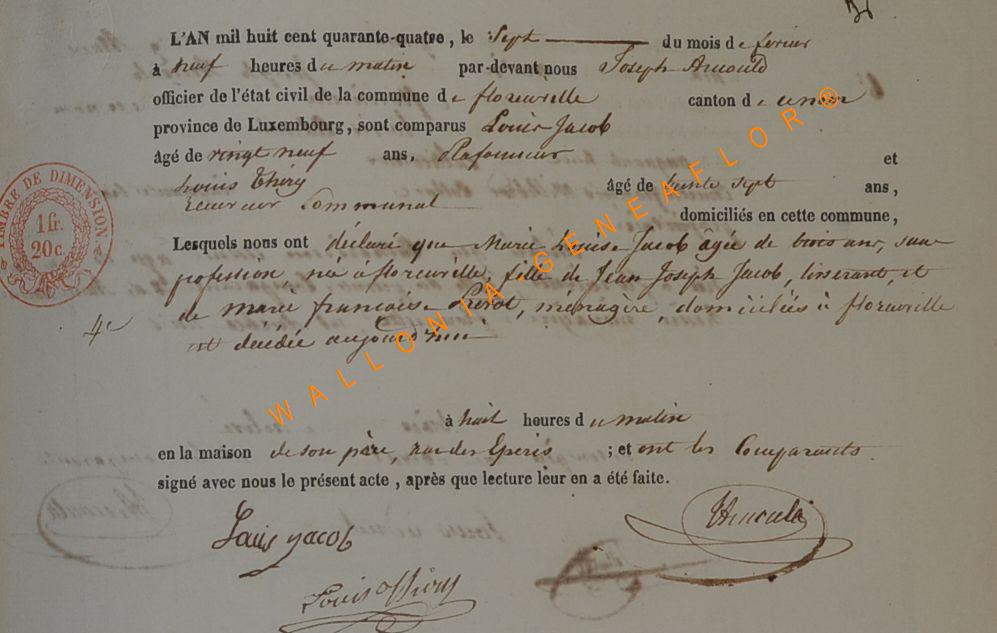 L'AN mil huit cent quarante-quatre, le Sept du mois de fevrier
à neuf heures du matin par-devant nous Joseph Arnould
officier de l'état civil de la commune de florenville canton de
province de Luxembourg, sont comparus Louis Jacob
âgé de vingt neuf ans, et
Louis Thery âgé de trente sept ans,
receveur Communal domiciliés en cette commune,
Lesquels nous ont déclaré que Marie Louise Jacob âgée de trois ans, sans
profession, née à florenville, fille de Jean Joseph Jacob, tisserant, et
de marie françoise Pierot, ménagère, domiciliés à florenville
4e
est décédée aujourd'hui
à huit heures du matin
en la maison de son père, rue des Eperis ; et ont les Comparants
signé avec nous le présent acte, après que lecture leur en a été faite.
Louis Jacob
TIMBRE DE DIMENSION
1 fr.
20 c.
WALLONIA GENEAFLOR®